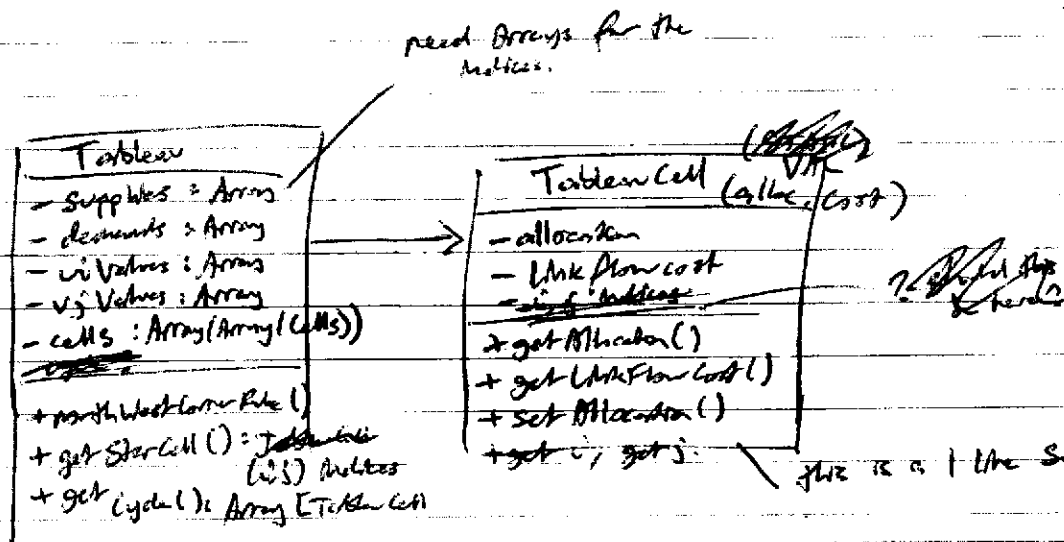 need Arrays for the
indices.
Tableau
- supplies : Array
- demands : Array
- ui Values : Array
- vj Values : Array
- cells : Array(Array(Cells))
+ northWestCornerRule()
+ getStarCell() :
(i,j) indices
+ get Cycle(): Array[TableauCell
TableauCell
(alloc, cost)
- allocation
- linkflowcost
- i, j indices
+ getAllocation()
+ getLinkFlowCost()
+ setAllocation()
+ get i, get j.
this is a 1 line